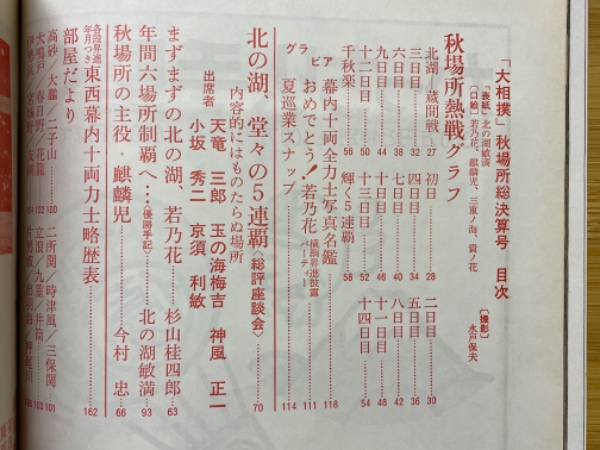 「大相撲」秋場所総決算号 目次
〔表紙〕北の湖敏満
〔口絵〕若乃花、麒麟児、三重ノ海、貴ノ花
〔撮影〕水戸保夫
秋場所熱戦グラフ
北湖―蔵間戦 27 初日 28 二日目 30
三日目 32 四日目 34 五日目 36
六日目 38 七日目 40 八日目 42
九日目 44 十日目 46 十一日目 48
十二日目 50 十三日目 52 十四日目 54
千秋楽 56 輝く5連覇 58
グラビア
幕内十両全力士写真名鑑 118
おめでとう!若乃花 横綱昇進披露パーティー 111
夏巡業スナップ 114
北の湖、堂々の5連覇〈総評座談会〉 70
内容的にはものたらぬ場所
出席者 天竜三郎 玉の海梅吉 神風正一
小坂秀二 京須利敏
まずまずの北の湖、若乃花 杉山桂四郎 63
年間六場所制覇へ…〈優勝手記〉 北の湖敏満 93
秋場所の主役・麒麟児 今村忠 66
各段昇進年月つき 東西幕内十両力士略歴表 162
部屋だより
高砂 大鵬 二子山 100 二所関/時津風/三保関 101
大鳴戸 春日野 花籠 102 立浪 九重 井筒 103